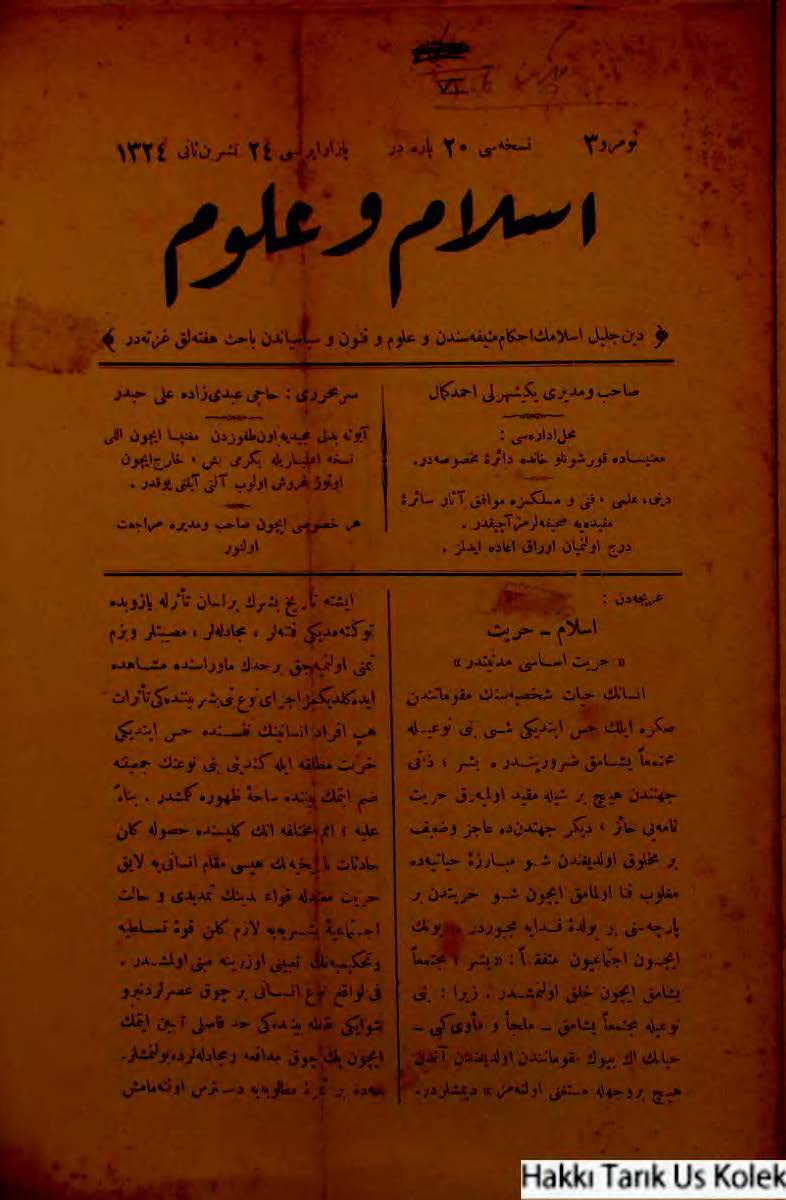 نومرو ٣ نسخه‌سی ٢٠ پاره در پازار ایرتسی ٢٤ تشرین ثانی ١٣٢٤
اسلام و علوم
﴿ دین جلیل اسلامك احكام منیفه‌سندن و علوم و فنون و سیاسیاتدن باحث هفته‌لق غزته‌در ﴾
صاحب و مدیری یكیشهرلی احمد كمال
محل اداره‌سی :
معنیساده قورشونلو خانده دائرهٔ مخصوصه‌در.
دینی، علمی ، فنی و مسلكمزه موافق آثار سائرهٔ
مفیده‌یه صحیفه‌لرمز آچیقدر .
درج اولنمیان اوراق اعاده ایدلمز .
سرمحرری : حاجی عبدی زاده علی حیدر
آبونه بدلی مجیدیه اون طقوزدن مغنیسا ایچون اللی
نسخه اعتباریله یكرمی بش ، خارج ایچون
اوتوز غروش اولوب آلتی آیلغی یوقدر .
هر خصوص ایچون صاحب و مدیره مراجعت
اولنور
عریجه‌دن :
اسلام ــ حریت
« حریت اساسی مدنیتدر »
انسانك حیات شخصیه‌سنك مقوماتندن
صكره ایلك حس ایتدیكی شی بنی نوعیله
مجتمعاً یشامق ضروریتدر . بشر ؛ ذاتی
جهتندن هیچ بر شیله مقید اولمیه‌رق حریت
تامه‌یی حائز ، دیكر جهتدن‌ده عاجز وضعیف
بر مخلوق اولدیغندن شو مبارزهٔ حیاتیه‌ده
مغلوب فنا اولمامق ایچون شو حریتدن بر
پارچه‌سنی بو یولده فدایه مجبوردر . بونك
ایچون اجتماعیون متفقاً : « بشر ؛ مجتمعاً
یشامق ایچون خلق اولنمشدر . زیرا : بنی
نوعیله مجتمعاً یشامق ــ ملجأ و مأوی كبی ــ
حیاتك اك بیوك مقوماتندن اولدیغندن آندن
هیچ بر وجهله مستغنی اوله‌مز » دیمشلردر.
ایشته تاریخ بشرك بر لسان تأثرله یازوبده
توكته‌مدیكی فتنه‌لر ، مجادله‌لر ، مصیبتلر وبزم
تمنی اولنمیه‌جق برحدك ماوراسنده مشاهده
ایده‌كلدیكمز اجزای نوع بنی بشر بیننده‌كی تأثرات
هب افراد انسانیتك نفسنده حس ایتدیكی
حریت مطلقه ایله كندینی بنی نوعنك جمعیتنه
ضم ایتمك بیننده ساحهٔ ظهوره كلمشدر . بناءً
علیه ؛ امم مختلفه انك كلیسنده حصوله كلن
حادثات تاریخیه‌نك هپسی مقام انسانی‌یه لایق
حریت معتدله قواعدینك تمدیدی و حالت
اجتماعیهٔ بشریه‌یه لازم كلن قوهٔ تسلطیه
وتحكمیه‌نك تعیینی اوزرینه مبنی اولمشدر .
فی‌الواقع نوع انسانی بر چوق عصرلردنبرو
شوایكی نقطه بیننده‌كی حد فاصلی تعیین ایتمك
ایچون پك چوق مدافعه ومجادله‌لرده بولنمشلر.
سه‌ده بر ثمرهٔ مطلوبه‌یه دسترس اوله‌مامش
Hakkı Tarık Us Kolek